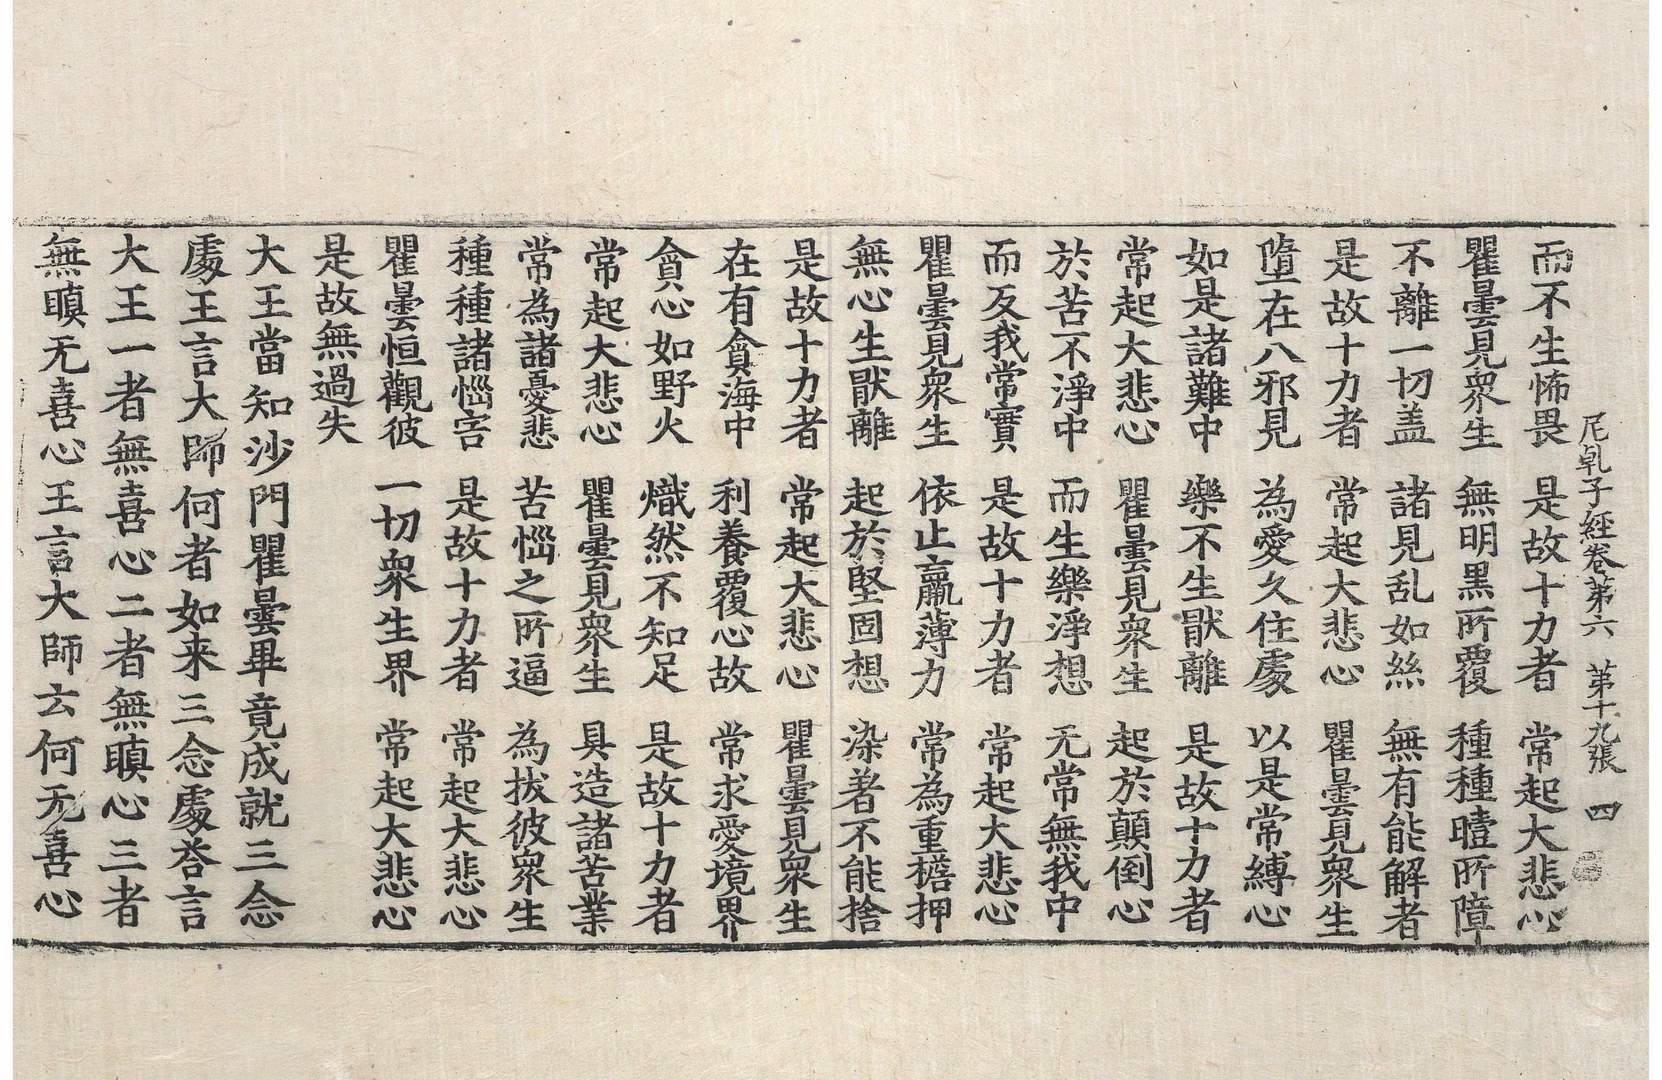 尼乹子經卷第六 第十九張 四
而不生怖畏 是故十力者 常起大悲心
瞿曇見衆生 無明黑所覆 種種曀所障
不離一切盖 諸見乱如絲 無有能解者
是故十力者 常起大悲心 瞿曇見衆生
墮在八邪見 為愛久住處 以是常縛心
如是諸難中 樂不生猒離 是故十力者
常起大悲心 瞿曇見衆生 起於顛倒心
於苦不淨中 而生樂淨想 无常無我中
而反我常實 是故十力者 常起大悲心
瞿曇見衆生 依止羸薄力 常為重檐押
無心生猒離 起於堅固想 染著不能捨
是故十力者 常起大悲心 瞿曇見衆生
在有貪海中 利養覆心故 常求愛境界
貪心如野火 熾然不知足 是故十力者
常起大悲心 瞿曇見衆生 具造諸苦業
常為諸憂悲 苦惱之所逼 為拔彼衆生
種種諸惱害 是故十力者 常起大悲心
瞿曇恒觀彼 一切衆生界 常起大悲心
是故無過失
大王當知沙門瞿曇畢竟成就三念
處王言大師何者如来三念處荅言
大王一者無喜心二者無瞋心三者
無瞋无喜心王言大師云何无喜心